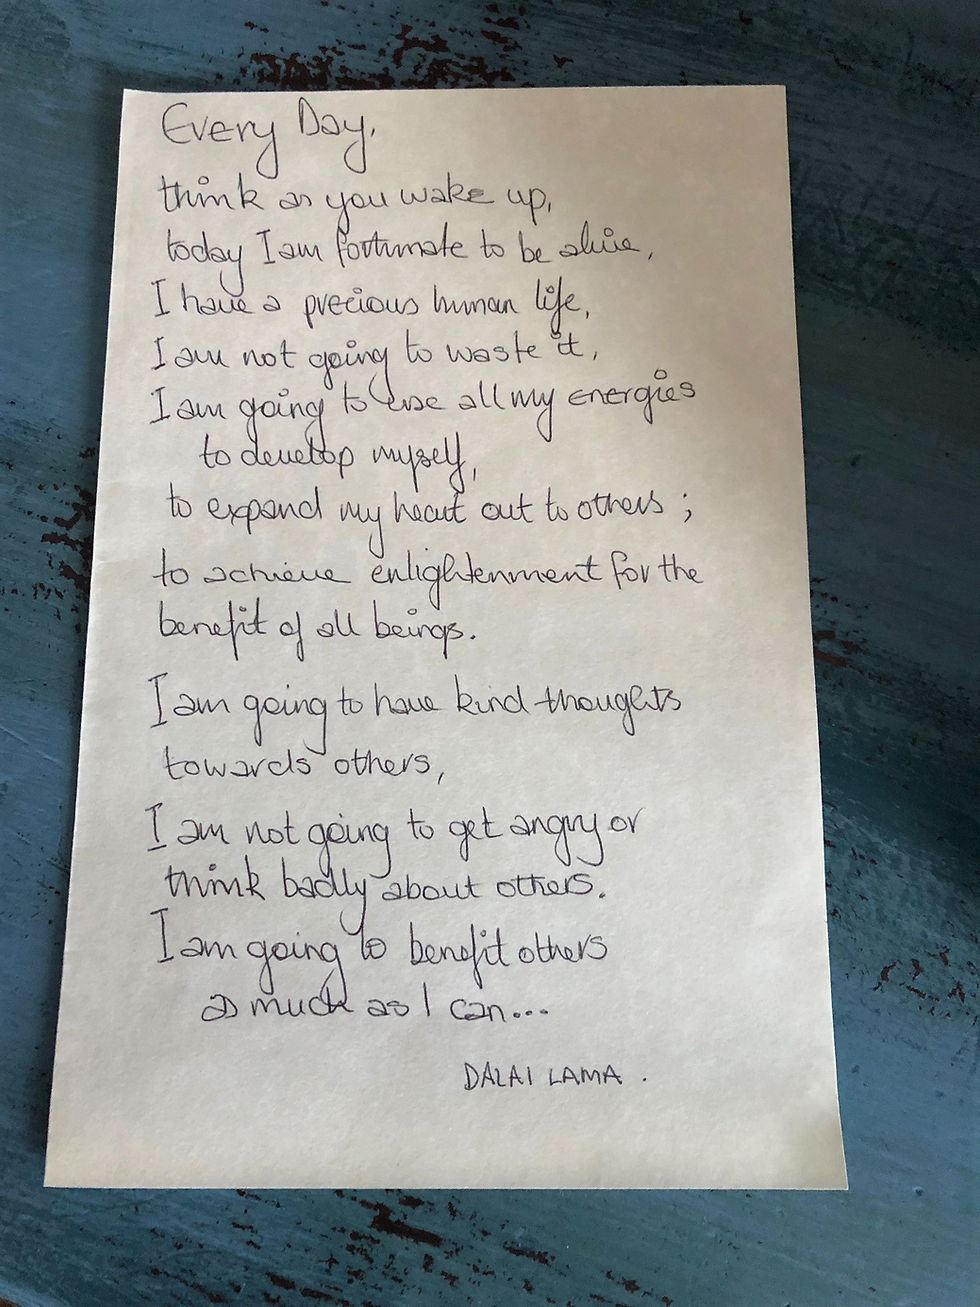 Every Day,
think as you wake up,
today I am fortunate to be alive,
I have a precious human life,
I am not going to waste it,
I am going to use all my energies
to develop myself,
to expand my heart out to others ;
to achieve enlightenment for the
benefit of all beings.
I am going to have kind thoughts
towards others,
I am not going to get angry or
think badly about others.
I am going to benefit others
as much as I can...
DALAI LAMA .